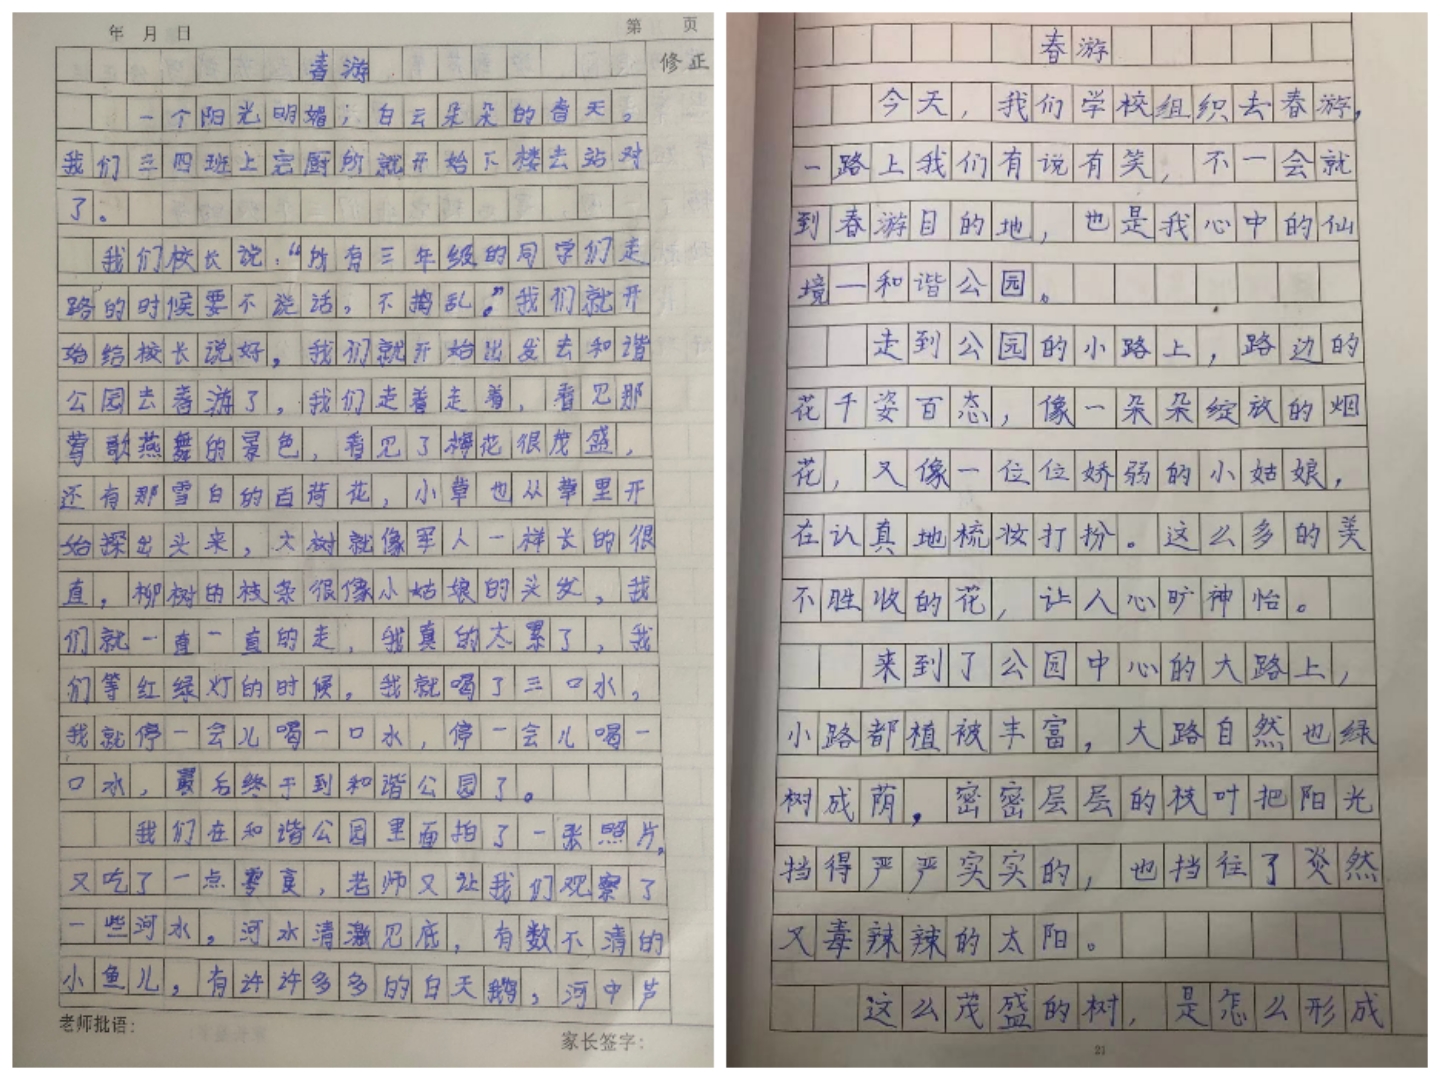 年 月 日
第 页
春游
修正
一个阳光明媚;白云朵朵的春天。
我们三四班上完厕所就开始下楼去站对
了。
我们校长说:“所有三年级的同学们走
路的时候要不说话,不捣乱。”我们就开
始给校长说好,我们就开始出发去和谐
公园去春游了,我们走着走着,看见那
莺歌燕舞的景色,看见了梅花很茂盛,
还有那雪白的百荷花,小草也从草里开
始探出头来,大树就像军人一样长的很
直,柳树的枝条很像小姑娘的头发,我
们就一直一直的走,我真的太累了,我
们等红绿灯的时候,我就喝了三口水,
我就停一会儿喝一口水,停一会儿喝一
口水,最后终于到和谐公园了。
我们在和谐公园里面拍了一张照片。
又吃了一点零食,老师又让我们观察了
一些河水,河水清澈见底,有数不清的
小鱼儿,有许许多多的白天鹅,河中芦
老师批语:
家长签字:
春游
今天,我们学校组织去春游,
一路上我们有说有笑,不一会就
到春游目的地,也是我心中的仙
境—和谐公园。
走到公园的小路上,路边的
花千姿百态,像一朵朵绽放的烟
花,又像一位位娇弱的小姑娘,
在认真地梳妆打扮。这么多的美
不胜收的花,让人心旷神怡。
来到了公园中心的大路上,
小路都植被丰富,大路自然也绿
树成荫,密密层层的枝叶把阳光
挡得严严实实的,也挡住了炎然
又毒辣辣的太阳。
这么茂盛的树,是怎么形成
21